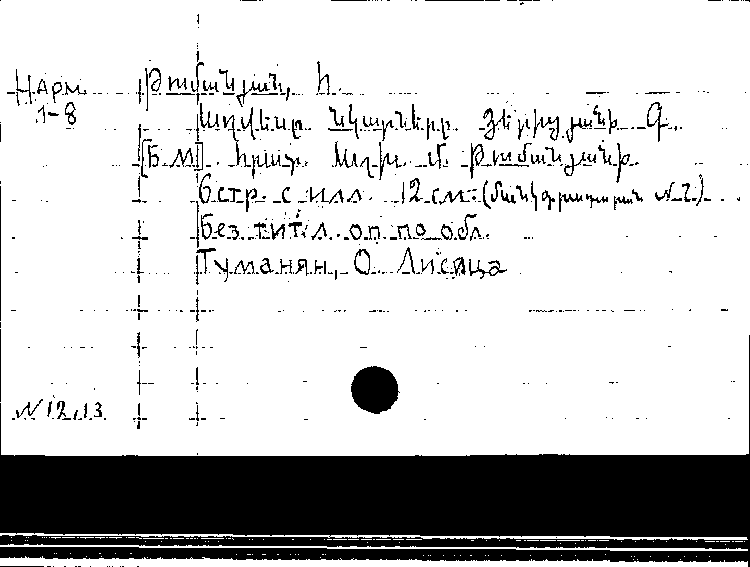 НАрм.
1-8
Թումանյան, Հ.
Աղվեսը. Նկարները Ջերիջյանի Գ.
[Б.м]. հրատ. Աղխ. Մ. Թումանյանի.
6 стр. с илл. 12 см. (մանկ գրադարան N 2.)
Без тит. л. оп. по обл.
Туманян, О. Лисица
N 12,13